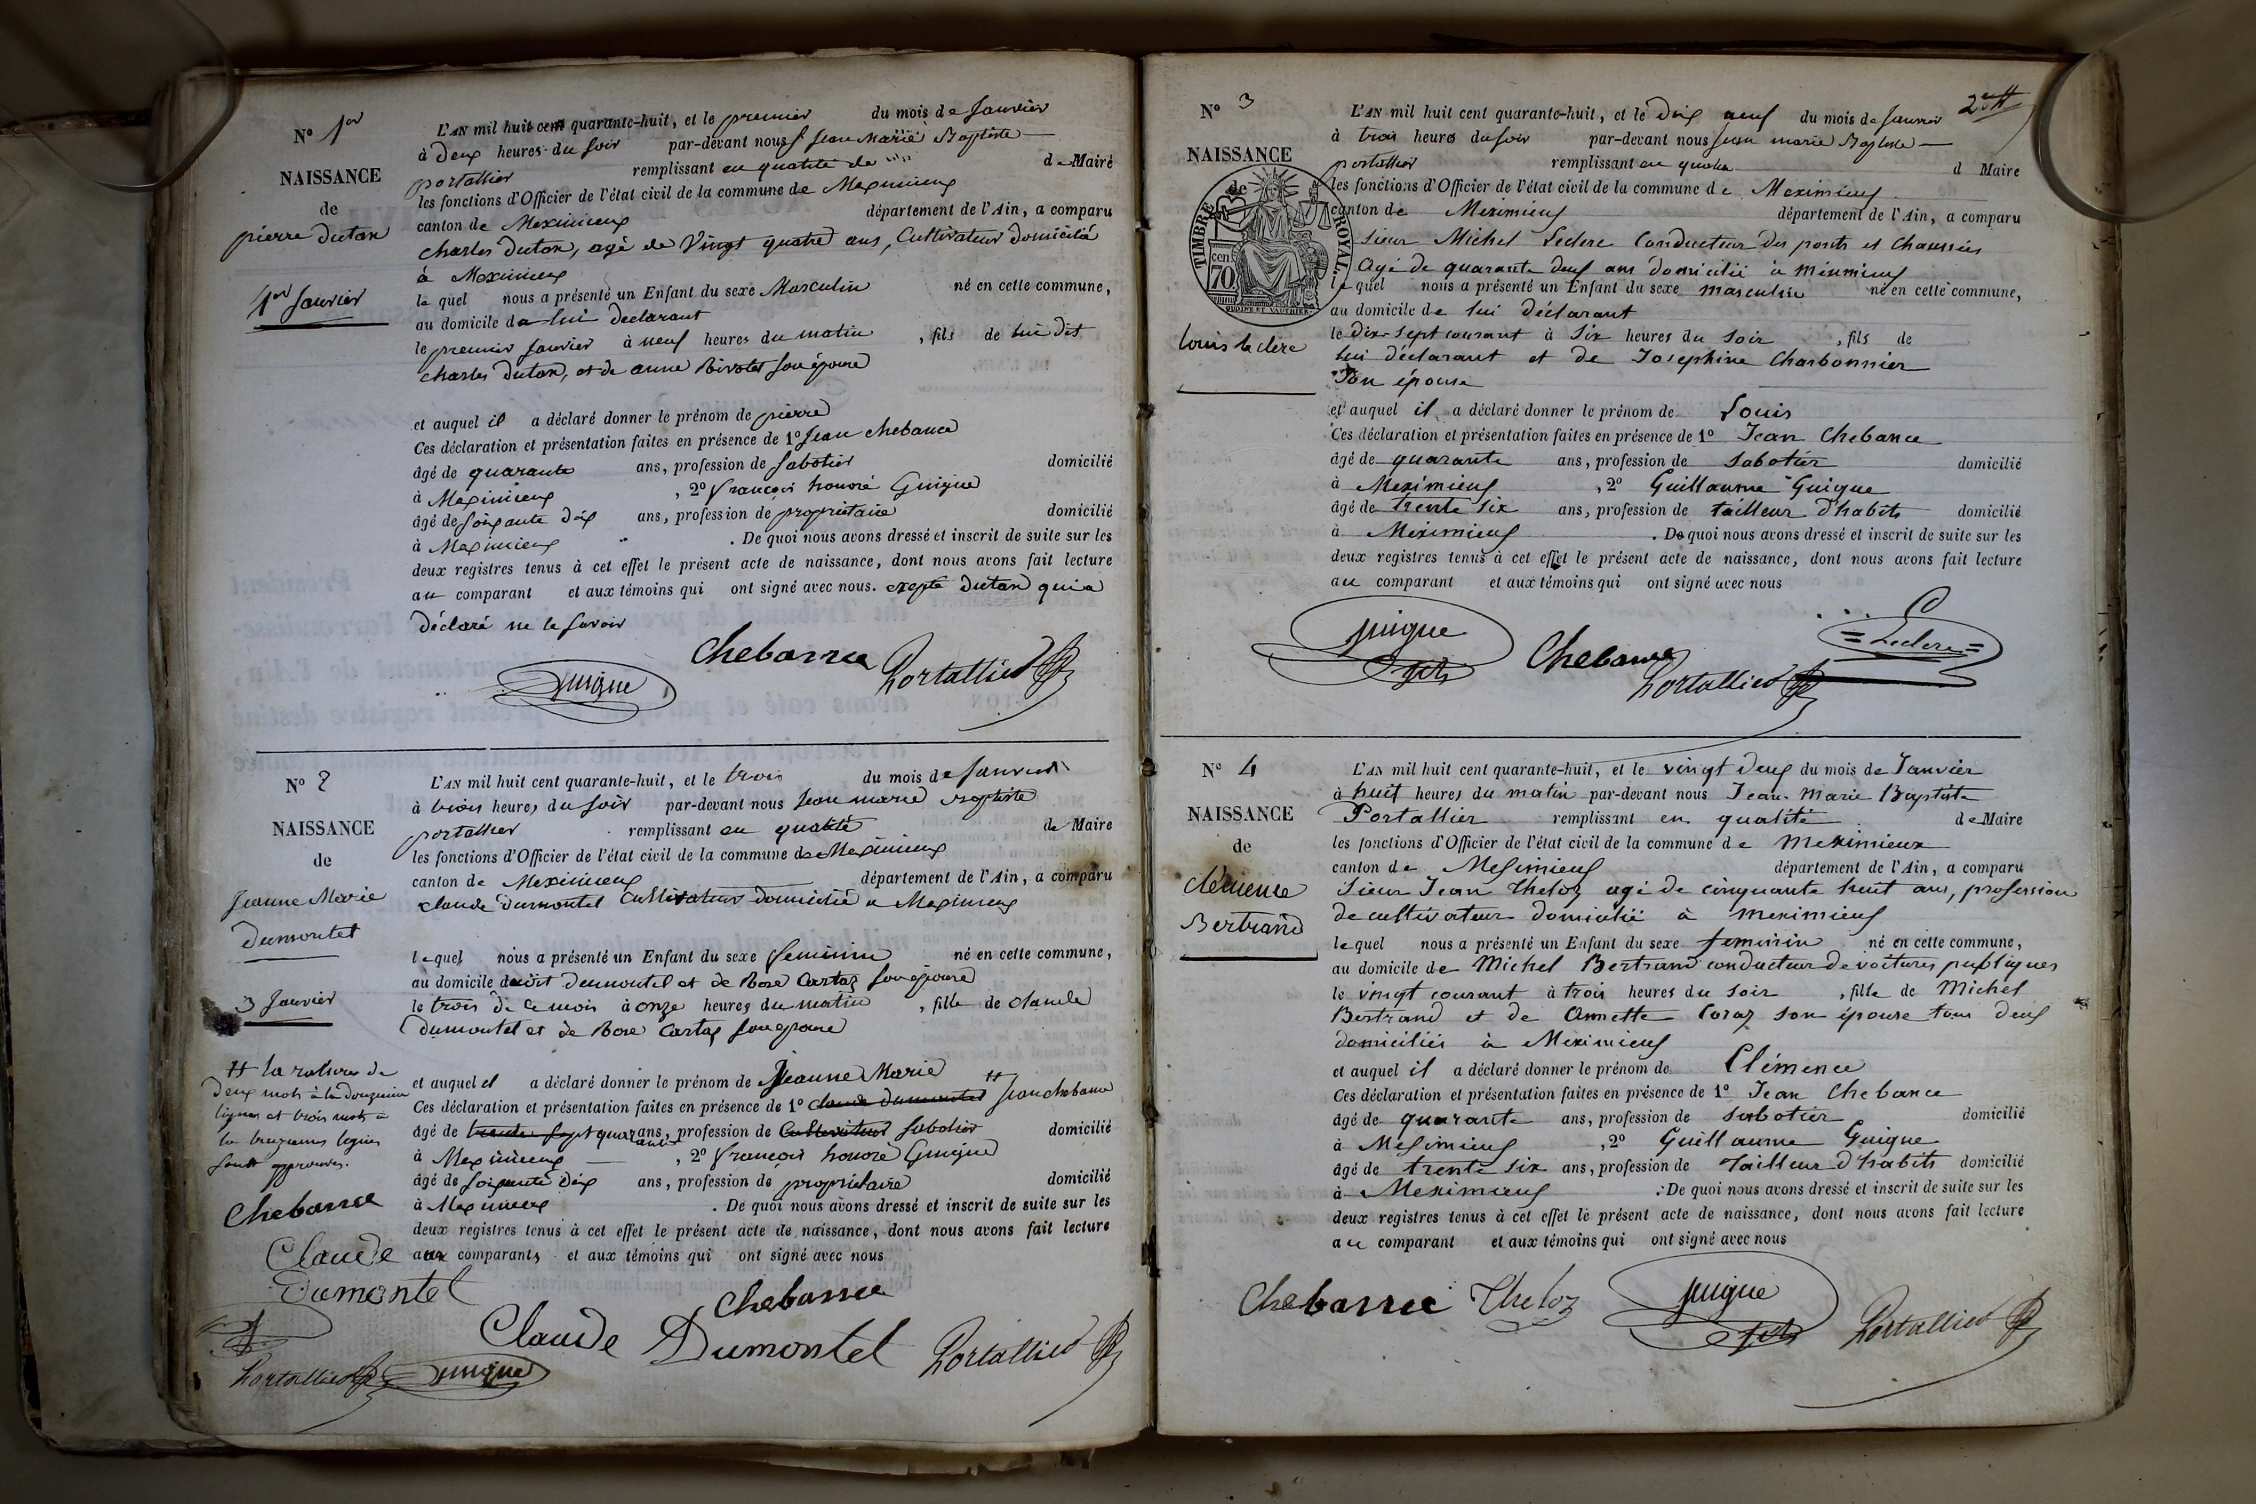 N° 1er
NAISSANCE
de
pierre dutan
1er Janvier
L'AN mil huit cent quarante-huit, et le premier du mois de Janvier
à deux heures du soir par-devant nous Jean Marie Baptiste
portallier remplissant en qualité de de Maire
les fonctions d'Officier de l'état civil de la commune de Meximieux
canton de Meximieux département de l'Ain, a comparu
charles dutan, agé de Vingt quatre ans, Cultivateur domicilié
à Meximieux
le quel nous a présenté un Enfant du sexe Masculin né en cette commune,
au domicile de lui declarant
le premier Janvier à neuf heures du matin, fils de lui dit
charles dutan, et de anne Rivolet son épouse
et auquel il a déclaré donner le prénom de pierre
Ces déclaration et présentation faites en présence de 1° Jean chebance
âgé de quarante ans, profession de Sabotier domicilié
à Meximieux, 2° françois honoré Guigue
âgé de soixante dix ans, profession de propriétaire domicilié
à Meximieux. De quoi nous avons dressé et inscrit de suite sur les
deux registres tenus à cet effet le présent acte de naissance, dont nous avons fait lecture
au comparant et aux témoins qui ont signé avec nous. excepte dutan qui a
déclaré ne le savoir
Chebance
Portallier
guigue
N° 2
NAISSANCE
de
Jeanne Marie
dumontel
3 Janvier
L'AN mil huit cent quarante-huit, et le trois du mois de Janvier
à trois heures du soir par-devant nous Jean marie Baptiste
portallier remplissant en qualité de Maire
les fonctions d'Officier de l'état civil de la commune de Meximieux
canton de Meximieux département de l'Ain, a comparu
claude dumontel Cultivateur domicilié a Meximieux
lequel nous a présenté un Enfant du sexe feminin né en cette commune,
au domicile dudit dumontel et de Rose Cartaz son épouse
le trois de ce mois à onze heures du matin, fille de claude
dumontel et de Rose Cartaz son epouse
et auquel il a déclaré donner le prénom de Jeanne Marie
Ces déclaration et présentation faites en présence de 1° claude dumontel # Jean chebance
âgé de trente sept quarante ans, profession de Cultivateur Sabotier domicilié
à Meximieux, 2° françois honoré Guigue
âgé de soixante dix ans, profession de propriétaire domicilié
à Meximieux. De quoi nous avons dressé et inscrit de suite sur les
deux registres tenus à cet effet le présent acte de naissance, dont nous avons fait lecture
aux comparants et aux témoins qui ont signé avec nous
# la rature de
deux mots à la douzieme
lignes et trois mots a
la treizieme lignes
sont approuvés.
Chebance
Claude
Dumontel
Portallier guigue
Chebance
Claude Dumontel Portallier
2e #
N° 3
NAISSANCE
de
TIMBRE ROYAL
70 cen
Louis leclerc
L'AN mil huit cent quarante-huit, et le dix neuf du mois de Janvier
à trois heures du soir par-devant nous Jean marie Baptiste
portallier remplissant en qualité d Maire
les fonctions d'Officier de l'état civil de la commune de Meximieux
canton de Meximieux département de l'Ain, a comparu
Sieur Michel Leclerc Conducteur des ponts et chaussées
agé de quarante deux ans domicilié à Meximieux
lequel nous a présenté un Enfant du sexe masculin né en cette commune,
au domicile de lui déclarant
le dix sept courant à six heures du soir, fils de
lui déclarant et de Josephine Charbonnier
son épouse
et auquel il a déclaré donner le prénom de Louis
Ces déclaration et présentation faites en présence de 1° Jean Chebance
âgé de quarante ans, profession de sabotier domicilié
à Meximieux, 2° Guillaume Guigue
âgé de trente six ans, profession de tailleur d'habits domicilié
à Meximieux. De quoi nous avons dressé et inscrit de suite sur les
deux registres tenus à cet effet le présent acte de naissance, dont nous avons fait lecture
au comparant et aux témoins qui ont signé avec nous
guigue Chebance Leclerc
Portallier
N° 4
NAISSANCE
de
clémence
Bertrand
L'AN mil huit cent quarante-huit, et le vingt deux du mois de Janvier
à huit heures du matin par-devant nous Jean-Marie Baptiste
Portallier remplissant en qualité de Maire
les fonctions d'Officier de l'état civil de la commune de Meximieux
canton de Meximieux département de l'Ain, a comparu
Sieur Jean Theloz agé de cinquante huit ans, profession
de cultivateur domicilié à Meximieux
lequel nous a présenté un Enfant du sexe feminin né en cette commune,
au domicile de Michel Bertrand conducteur de voitures publiques
le vingt courant à trois heures du soir, fille de Michel
Bertrand et de Annette Coraz son épouse tous deux
domiciliés à Meximieux
et auquel il a déclaré donner le prénom de Clémence
Ces déclaration et présentation faites en présence de 1° Jean Chebance
âgé de quarante ans, profession de sabotier domicilié
à Meximieux, 2° Guillaume Guigue
âgé de trente six ans, profession de tailleur d'habits domicilié
à Meximieux. De quoi nous avons dressé et inscrit de suite sur les
deux registres tenus à cet effet le présent acte de naissance, dont nous avons fait lecture
au comparant et aux témoins qui ont signé avec nous
Chebance Theloz guigue Portallier